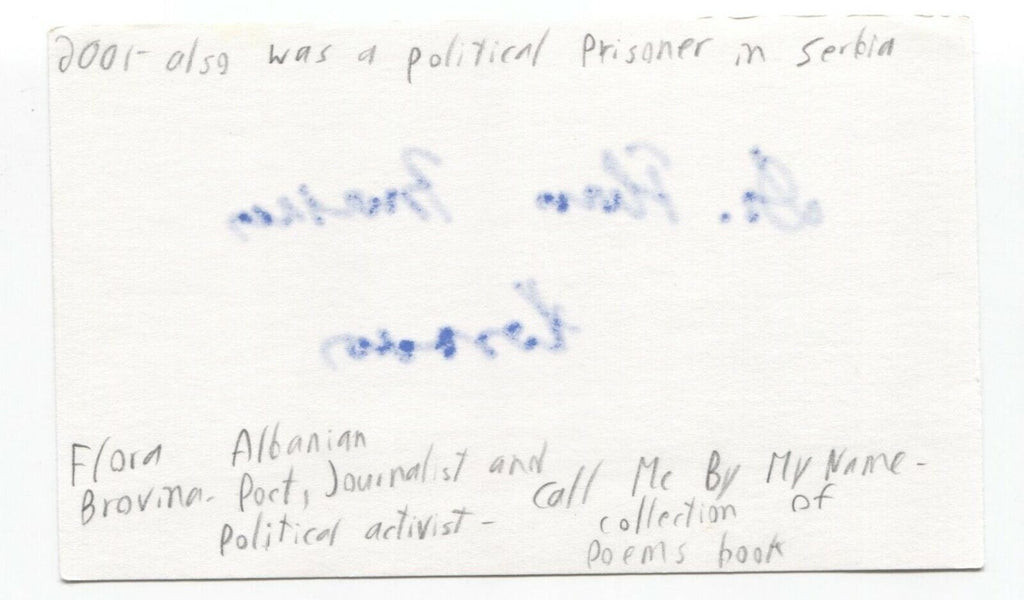 2001- also was a political Prisoner in Serbia
Dr. Flora Brovina
Kosova
Flora Albanian
Brovina- Poet, Journalist and
political activist-
Call Me By My Name-
collection of
Poems book